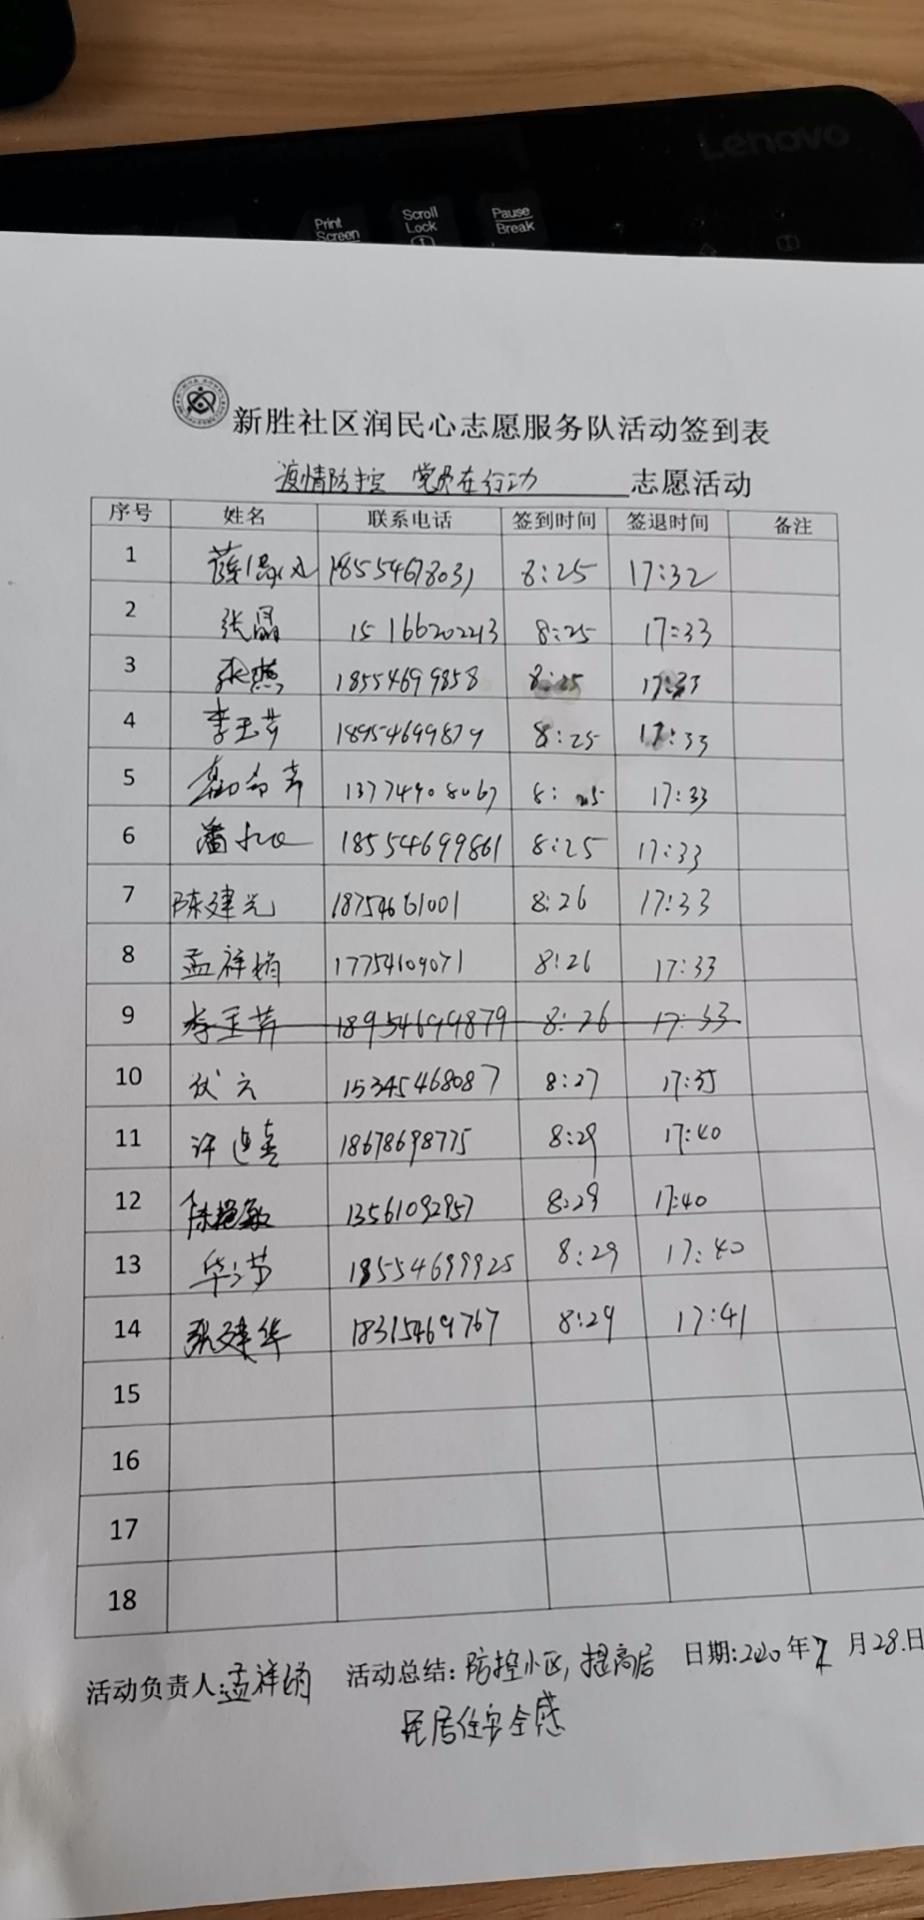 Lenovo
Print Screen
Scroll Lock
Pause Break
新胜社区润民心志愿服务队活动签到表
疫情防控 党员在行动 志愿活动
序号 姓名 联系电话 签到时间 签退时间 备注
1 18554678031 8:25 17:32
2 张晶 15166202243 8:25 17:33
3 张燕 18554699858 8:25 17:33
4 李玉芳 18954699879 8:25 17:33
5 13774908067 8:25 17:33
6 18554699861 8:25 17:33
7 陈建光 18754661001 8:26 17:33
8 孟祥娟 17754109071 8:26 17:33
9 李玉芳 18954699879 8:26 17:33
10 15345468087 8:27 17:35
11 18678698775 8:29 17:40
12 陈艳敏 13561092957 8:29 17:40
13 18554699925 8:29 17:40
14 张建华 18315469767 8:29 17:41
15
16
17
18
活动负责人:孟祥娟 活动总结:防控小区,提高居 日期:2020年 月28日
民居住安全感